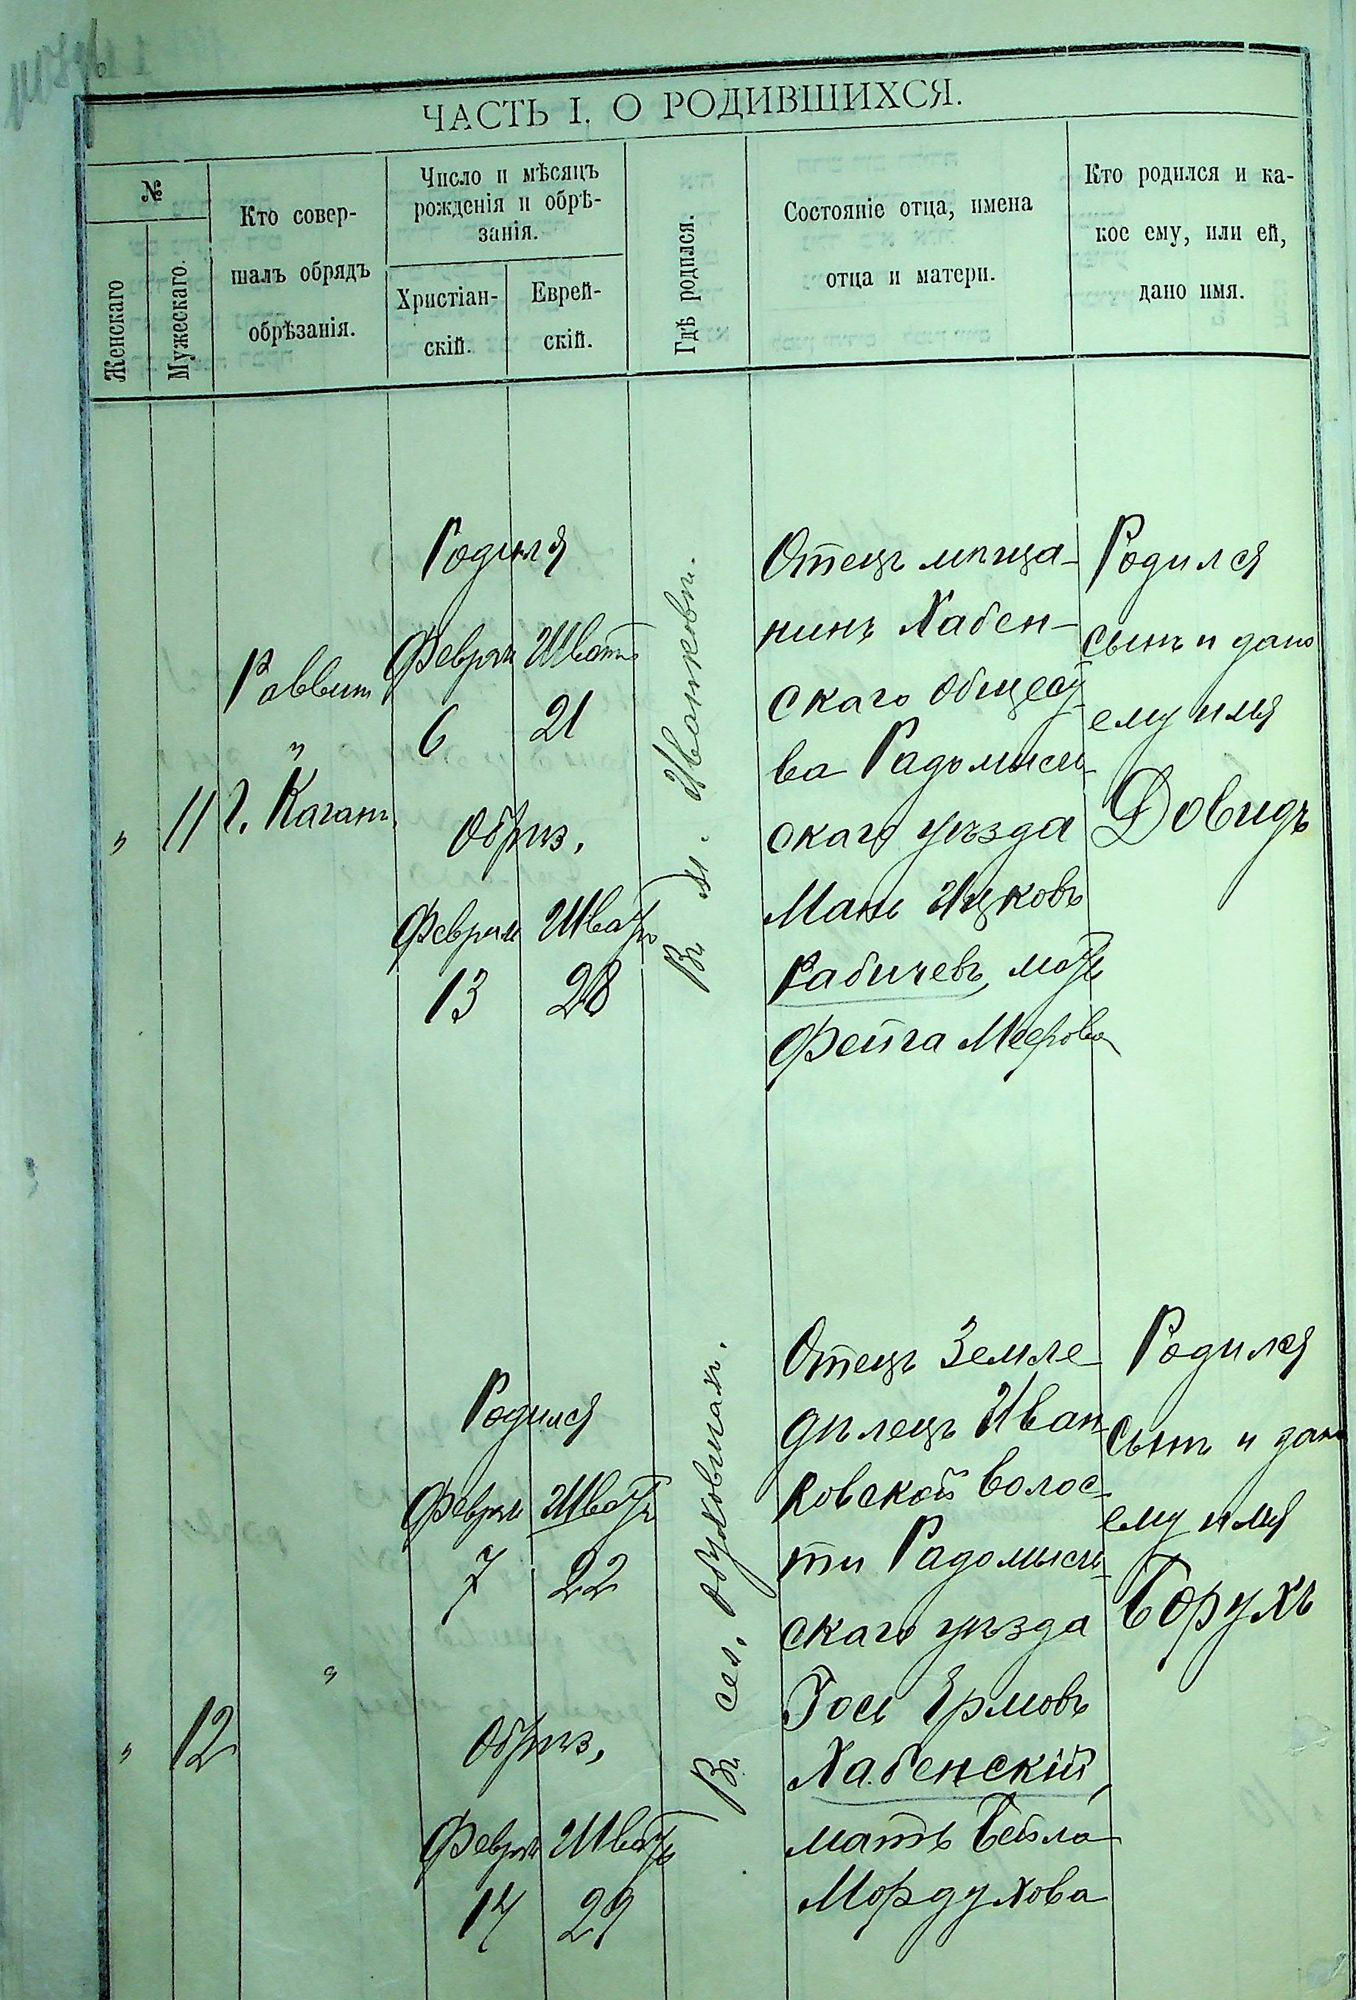 ЧАСТЬ I. О РОДИВШИХСЯ.
№
Женскаго
Мужескаго.
Кто совер-
шалъ обрядъ
обрѣзанія.
Число и мѣсяцъ
рожденія и обрѣ-
занія.
Христіан-
скій.
Еврей-
скій.
Гдѣ родился.
Состояніе отца, имена
отца и матери.
Кто родился и ка-
кое ему, или ей,
дано имя.
"
11
Раввин
"
г. Каган
Родился
Феврал
6
Шват
21
Обрѣз.
Феврал
13
Шватъ
28
Въ м. Иванковѣ.
Отецъ мѣща-
нинъ Хабен-
скаго общест
ва Радомысл-
скаго уѣзда
Ицковъ
Рабичевъ, мать
Фейга Меерова
Родился
сынъ и дано
ему имя
Довидъ
"
12
"
Родился
Феврал
7
Шватъ
22
Обрѣз.
Феврал
14
Шватъ
29
Въ сел. Обуховичахъ.
Отецъ Земле
дѣлецъ Иван
ковской волос-
ти Радомысл-
скаго уѣзда
Ермовъ
Хабенскій,
мать Бейла
Мордухова
Родился
сынъ и дано
ему имя
Борухъ